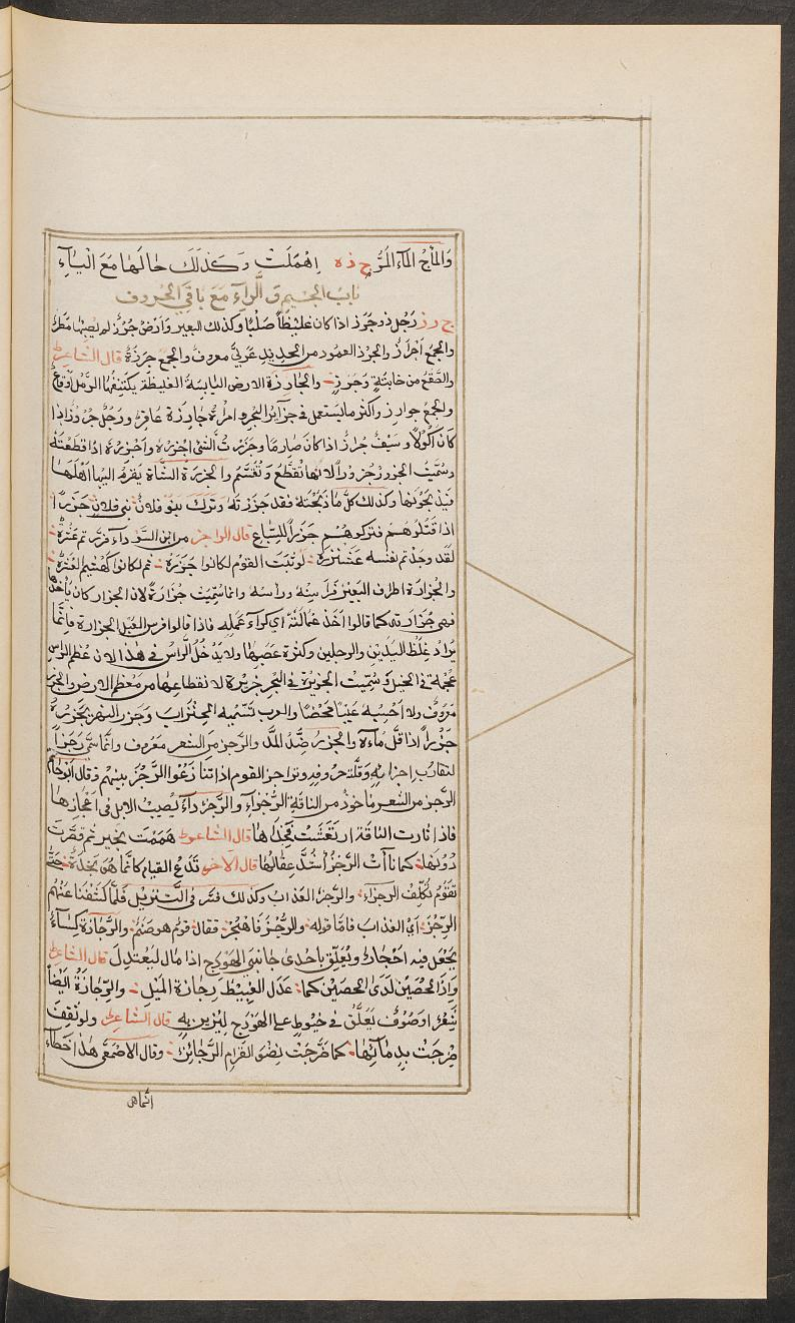 وَالمأْجُ المآءُ المُرُّ ج ذ ه اهْمِلَتْ وَكَذلكَ حَالهَا مَعَ الْيَآءِ
بَابُ الجيم وَ الرآء مَعَ باقي الحروف
ج ر ز رَجُل ذو جَرَز اذا كان غليظًا صَلْبًا وكذلك البعير وَارْضٌ جُرُزٌ لم يصبها مَطَرٌ
والجمع اجْرازٌ والجرز العمود من الحديد عَرَبيٌّ معروف والجمع جِرَزَةٌ قال الشاعر
والصَّقْع من خابطَةٍ وَجُرْزِ والجارزة الارض اليابسة الغليظة يكتنفها الرّمل او قاعٌ
والجمع جوارز واكثر ما يستعمل في جزآئر البحر وامرأةٌ جارزة عاقرٌ ورَجُلٌ جَروز اذا
كانَ اكولًا وسيفٌ جراز اذا كان صارما وجزرت الشئ اجزره واجزره اذا قطعته
وسُمّيت الجزور جزورًا لانها تُقَطَّعُ وَتُقَسَّم والجزرة الشاة يقوم اليها اهلها
فيذبحونها وكذلك كلّ ما ذبحته فقد جزرته وتركَ بنو فلان بني فلان جَزَرًا
اذا قتلوهم فتركوهم جَزَرًا للسباع قال الراجز من ابن السودآء فرّ ثم عثرة
لقد وجدتم نفسه عَشَنزَرَه لو ثبت القوم لكانوا جَزَرَة ثم لكانوا كهشيم
والجُزارة اطراف البعير فراسنه وراسه وانما سُمّيت جُزارةً لان الجزار كان ياخذها
فهي جُزارته كما قالوا اخذ عمالته اي كراء عمله فاذا قالوا فرس عبل الجزارة فانّما
يراد غلظ اليدين والرجلين وكثرة عصبها ولا يدخل الراس في هذا لان عظم الراس
هجنة في الخيل وسُمّيت الجزيرة في البحر جزيرة لانقطاعها من معظم الارض والجزر
معروف ولا احسبه عربيا محضًا والعرب تسمّيه الحِنزاب وجزر النهر يجزر
جَزْرًا اذا قلّ مآءه والجزر ضدُّ المدّ والرجز من الشعر معروف وانّما سمّي رجزًا
لتقارب اجزائه وقلّة حروفه وتراجز القوم اذا تنازعوا الرجز بينهم وقال ابو حاتم
الرّجز من الشعر ماخوذ من الناقة الرَّجزآء والرَّجَز دآء يصيب الابل في اعجازها
فاذا ثارت الناقة ارتعشت فخذاها قال الشاعر هَمَمْتَ بخير ثم قصّرت
دونها كما نآءت الرجزآء شدّ عقالها قال الاخر تَدَعُ القيام كانّما هو نَجْدَة حتّى
تقوم تكلّف الرجزآء والرجز العذاب وكذلك فسّر في التنزيل فلمّا كشفنا عنهم
الرّجز اي العذاب فامّا قوله والرُّجز فاهجر فقال قوم هو صنم والرّجازة كسآءٌ
يجعل فيه احجار ويعلّق باحدى جانبي الهودج اذا مال ليعتدل قال الشاعر
وَاذا لَدَى كما عَدَلَ الغبيطَ رجازة الميل والرّجازة ايضًا
شعر او صوف يعلّق في خيوط على الهودج ليزين به قال الشاعر ولو ثقفَت
ضرجت بدمآئها كما ضَرَّجت نضو القرام الرّجائز وقال الاصمعي هذا خطآء
انّما هي